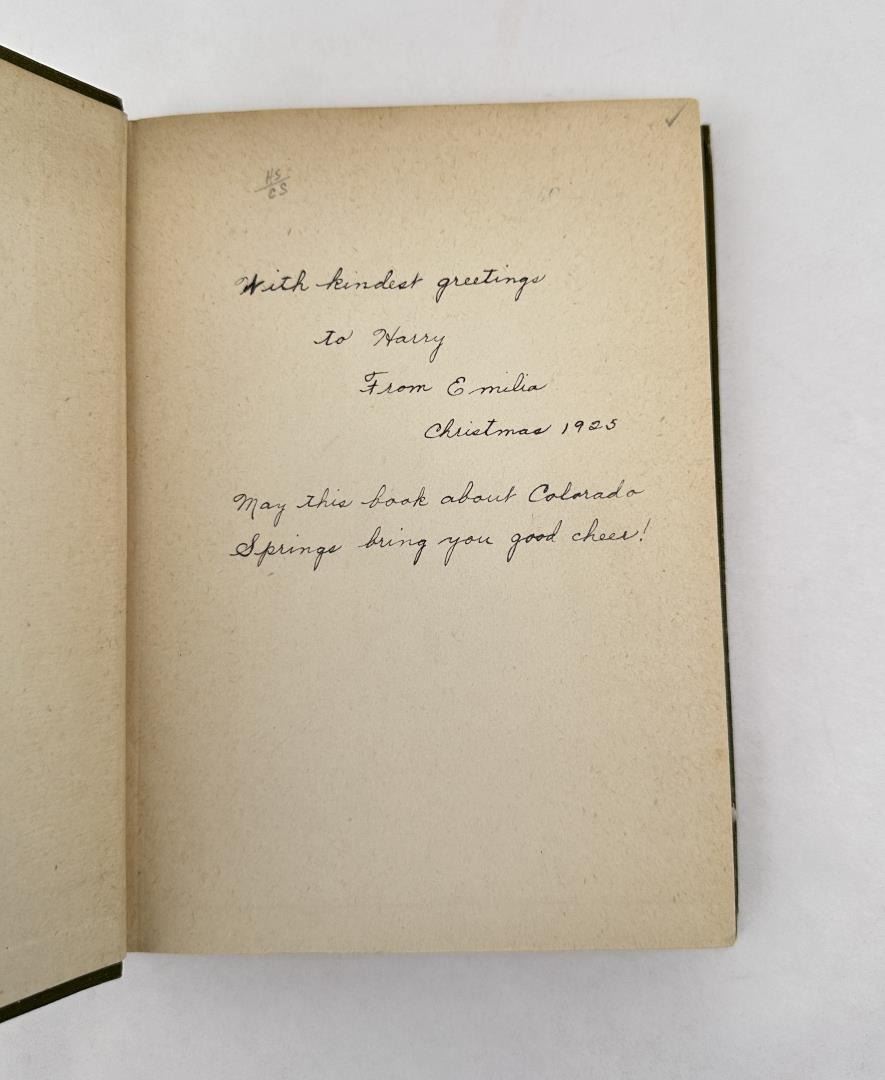 HS
CS
With kindest greetings
to Harry
From Emilia
Christmas 1925
May this book about Colorado
Springs bring you good cheer!